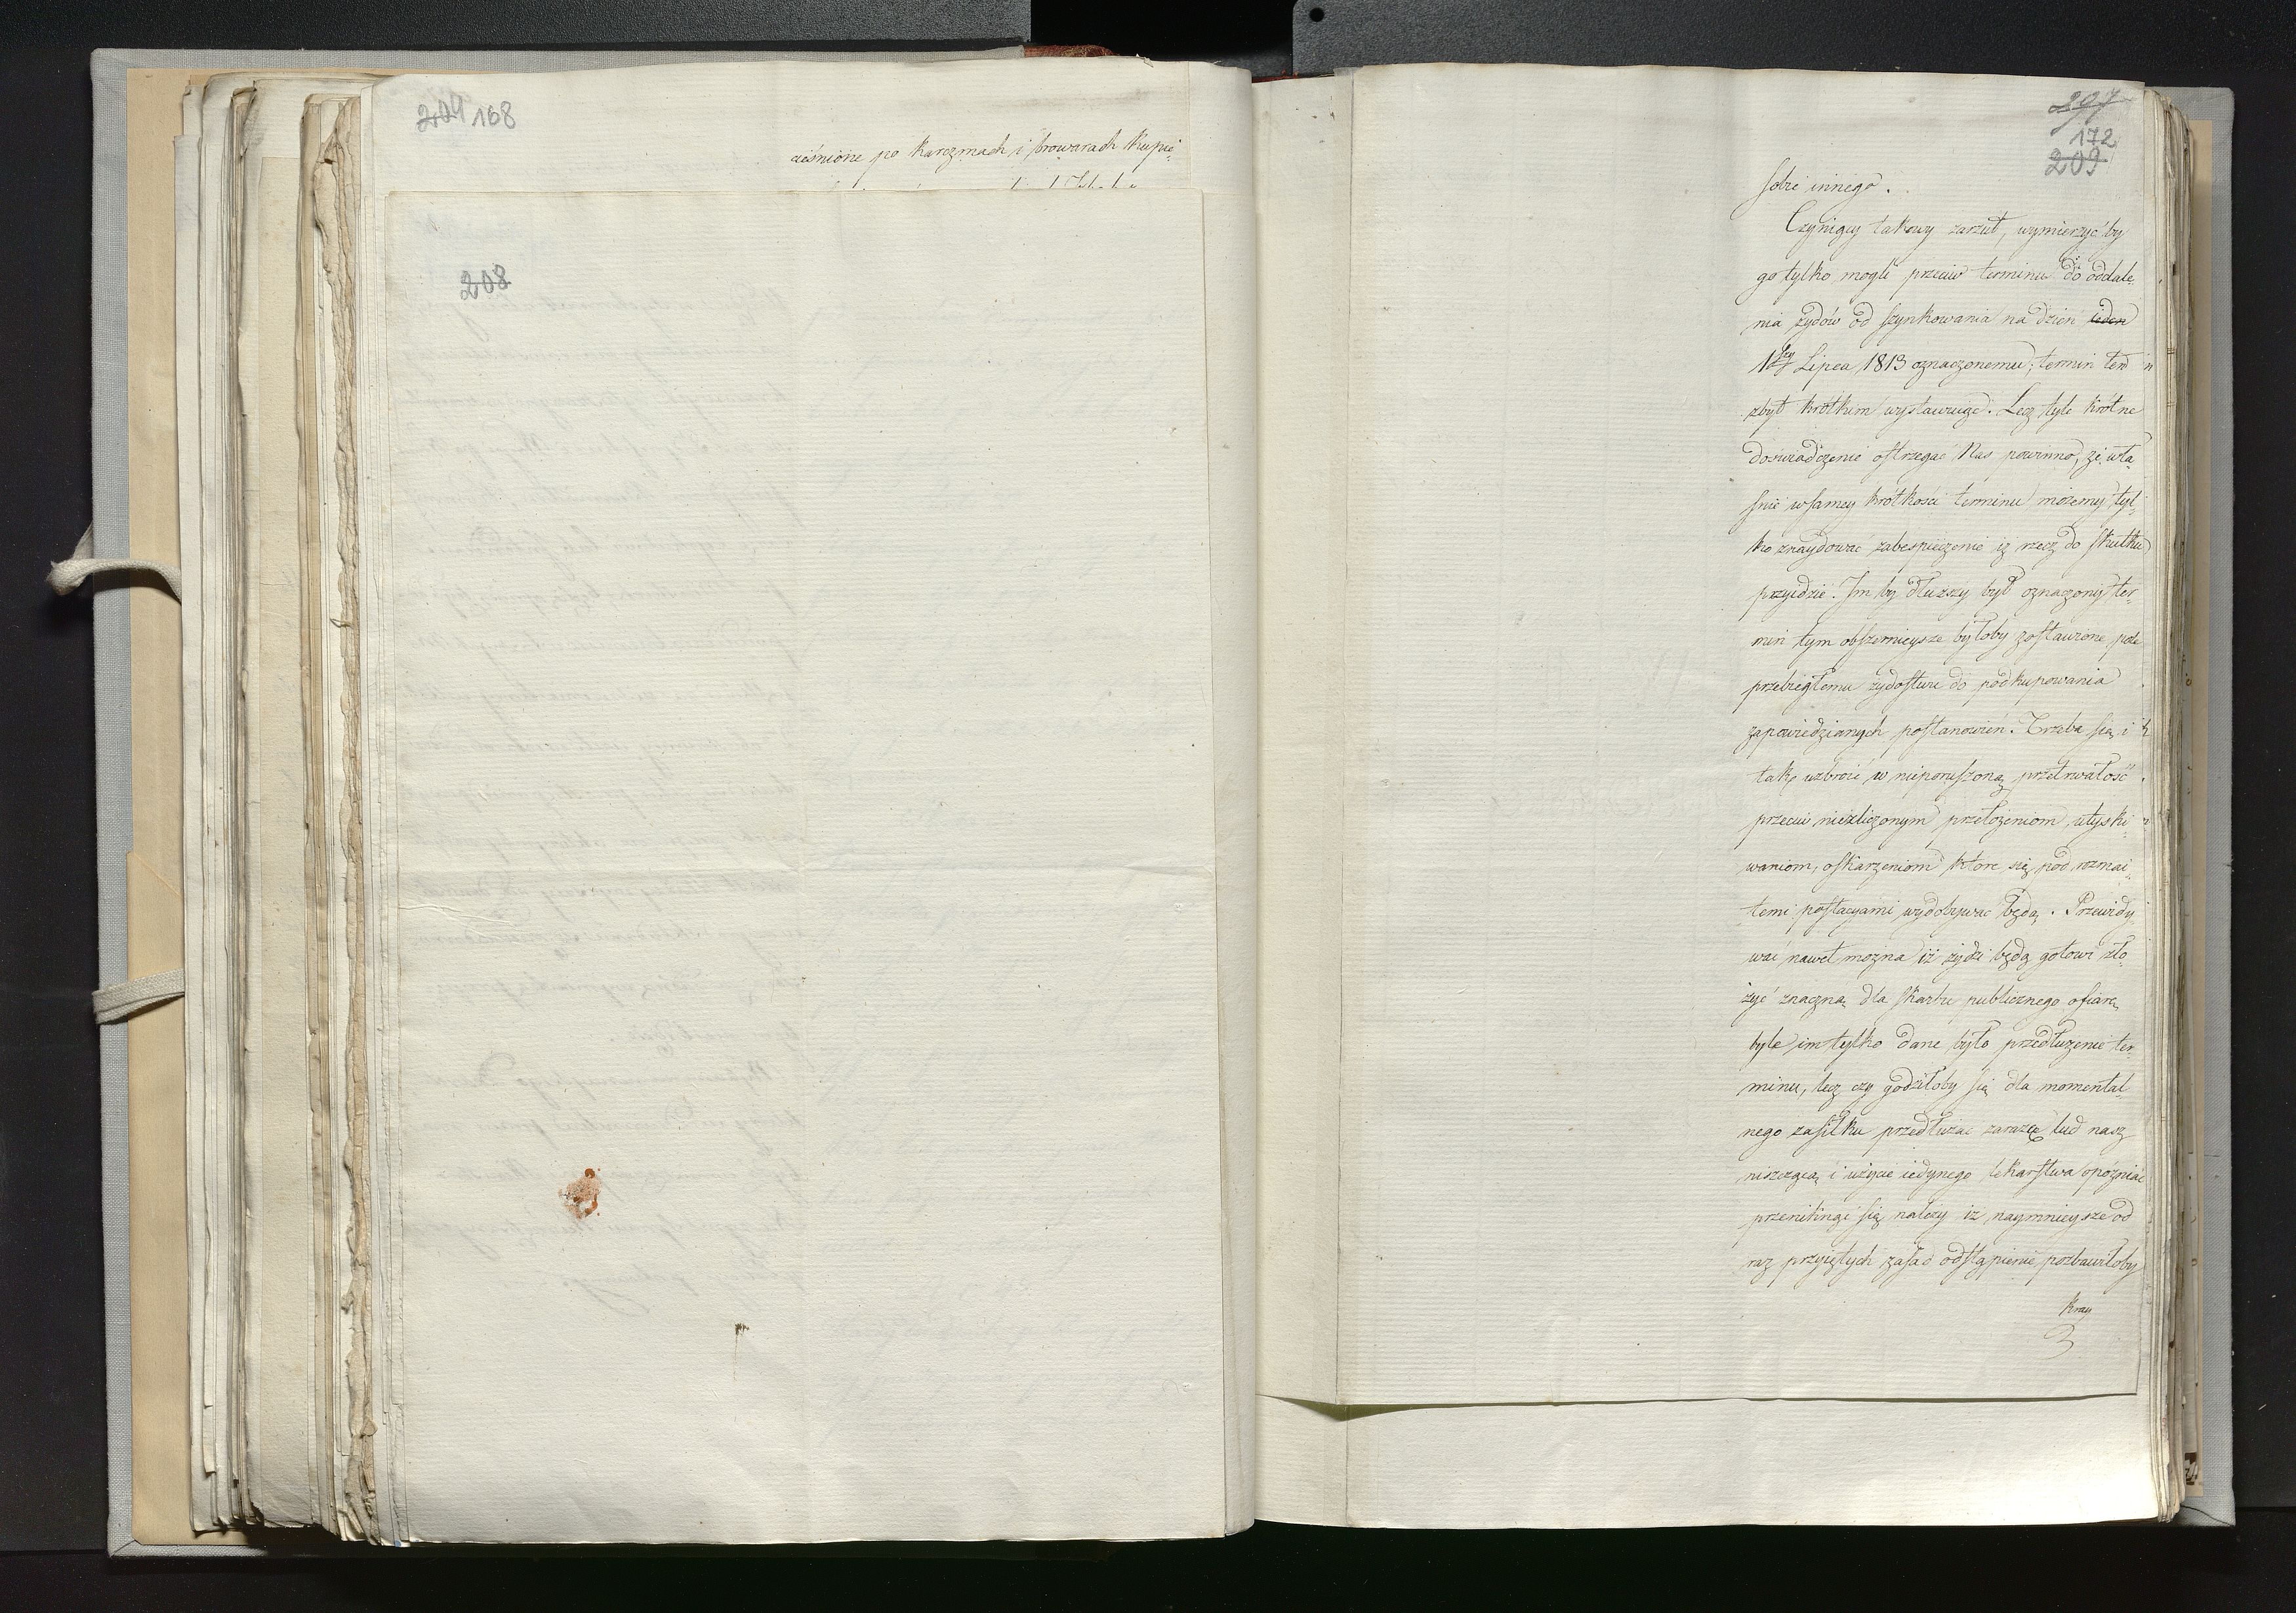 204 168
ciśnione po karczmach i browarach kupie„
208
297
172
209
sobie innego.
Czyniący takowy zarzut, wymierzyć by
go tylko mogli przeciw terminu do oddale„
nia żydów od szynkowania na dzień ieden
1szy Lipca 1813 oznaczonemu; termin ten
zbyt krótkim wystawuiąc. Lecz tyle krotne
doświadczenie ostrzegać Nas powinno, że wła„
śnie w samey krótkości terminu możemy tyl„
ko znaydować zabespieczenie iż rzecz do skutku
przyidzie. Im by dłuższy był oznaczony ter„
min tym obszernieysze byłoby zostawione pole
przebiegłemu żydostwu do podkupowania
zapowiedzianych postanowień. Trzeba się i
tak uzbroić w nieporuszoną przetrwałość
przeciw niezliczonym przełożeniom, utyski„
waniom, oskarżeniom które się pod rozmai„
temi postacyami wydobywać będą. Przewidy
wać nawet można iż żydzi będą gotowi zło„
żyć znaczną dla skarbu publicznego ofiarę
byle im tylko dane było przedłużenie ter„
minu, lecz czy godziłoby się dla momental„
nego zasiłku przedłużać zarazę lud nasz
niszczącą i użycie iedynego lekarstwa opóźniać
przeniknąć się należy iż naymnieysze od
raz przyiętych zasad odstąpienie pozbawiłoby
kray